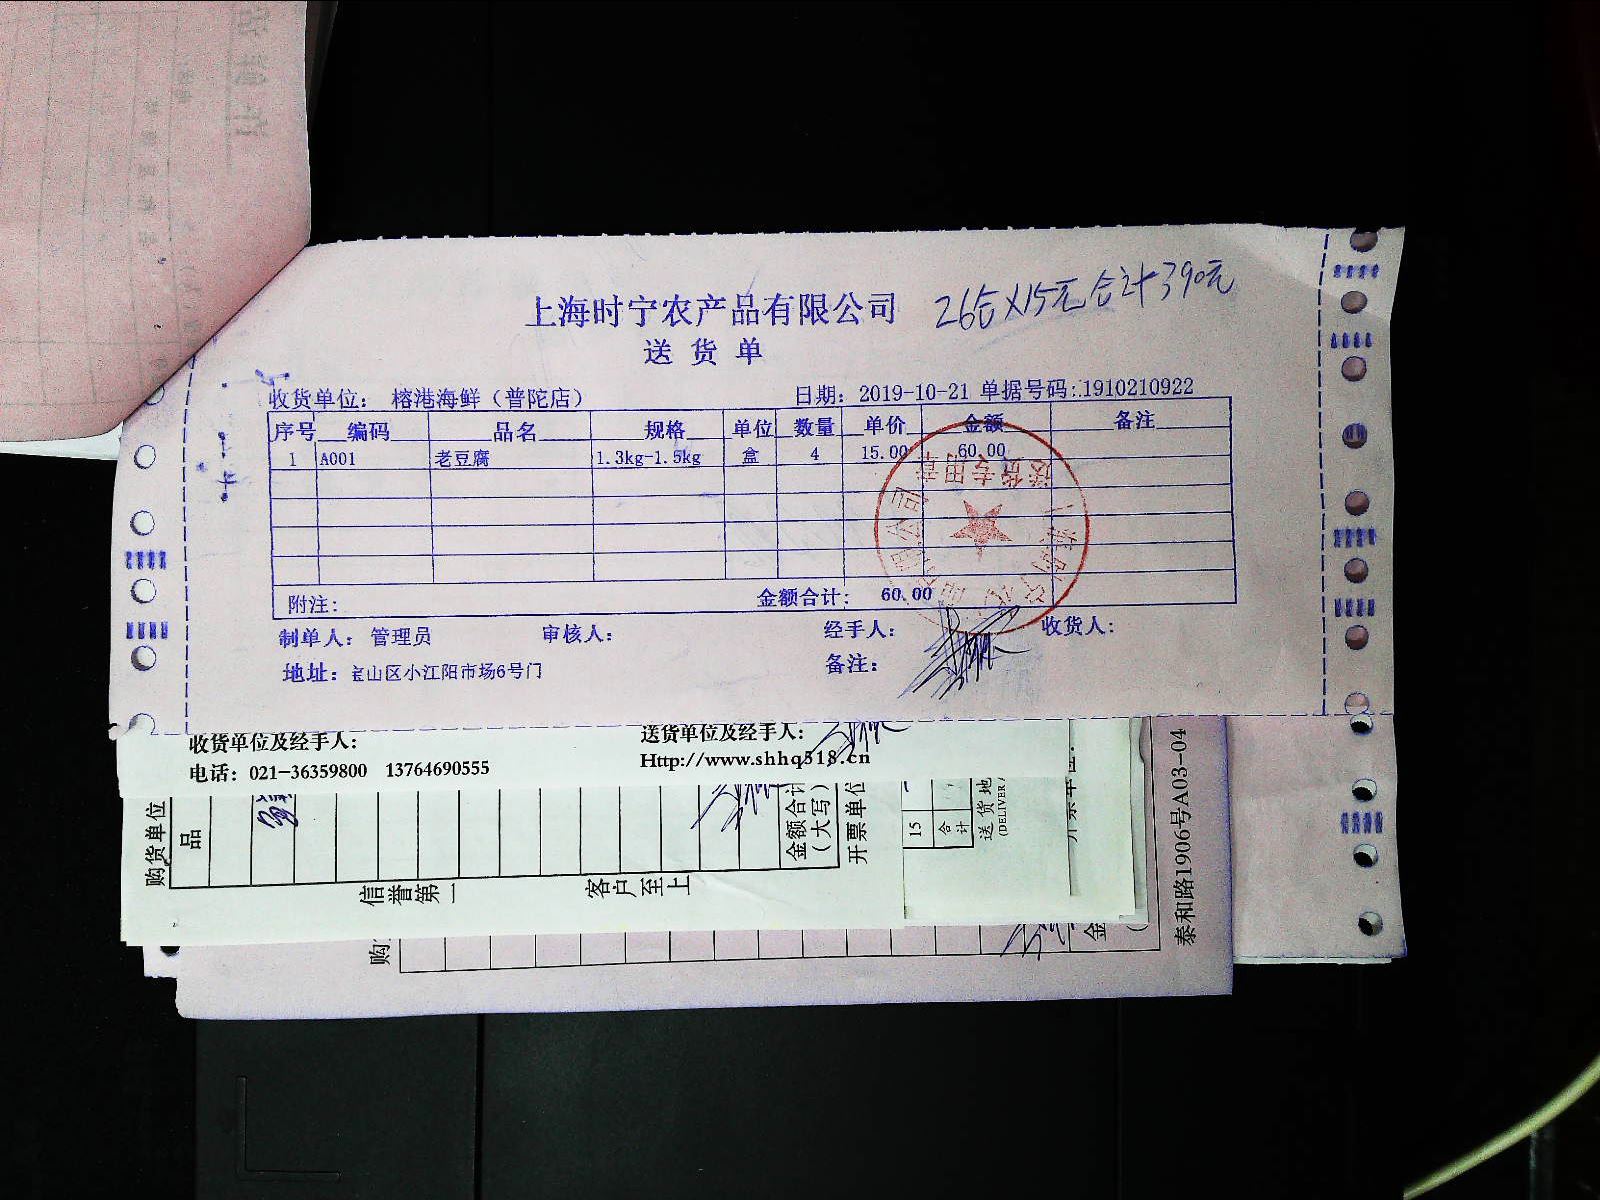 上海时宁农产品有限公司
26盒×15元合计390元
送货单
收货单位： 榕港海鲜（普陀店）
日期：2019-10-21 单据号码:.1910210922
序号 编码 品名 规格 单位 数量 单价 金额 备注
1 A001 老豆腐 1.3kg-1.5kg 盒 4 15.00 60.00
附注: 金额合计: 60.00
制单人: 管理员 审核人: 经手人: 收货人:
地址: 宝山区小江阳市场6号门 备注:
收货单位及经手人: 送货单位及经手人:
电话: 021-36359800 13764690555 Http://www.shhq518.cn
购货单位
品
金额合计
(大写)
开票单位
15
合计
送货地
(DELIVER
信誉第一
客户至上
购
金
泰和路1906号A03-04